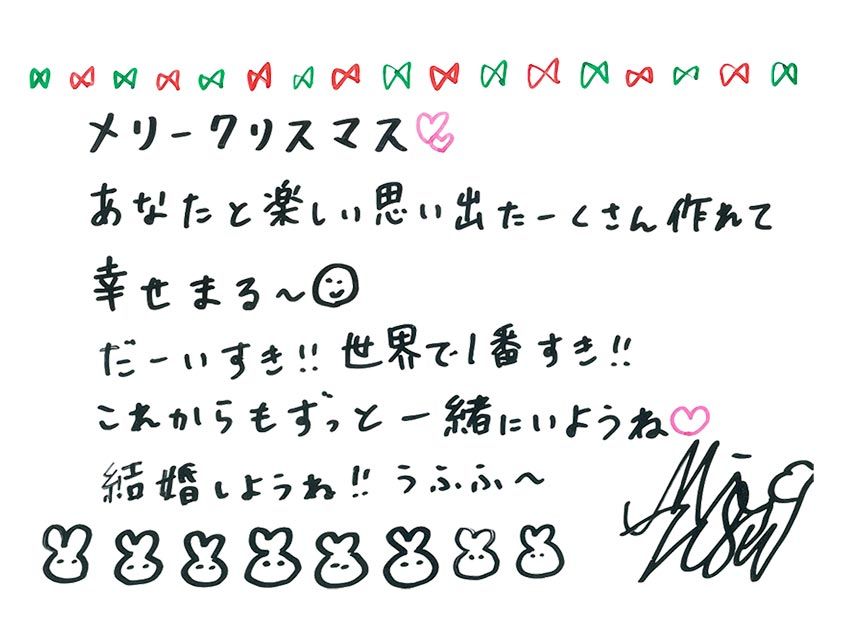 メリークリスマス
あなたと楽しい思い出たーくさん作れて
幸せまる〜
だーいすき!! 世界で1番すき!!
これからもずっと一緒にいようね
結婚しようね!! うふふ〜